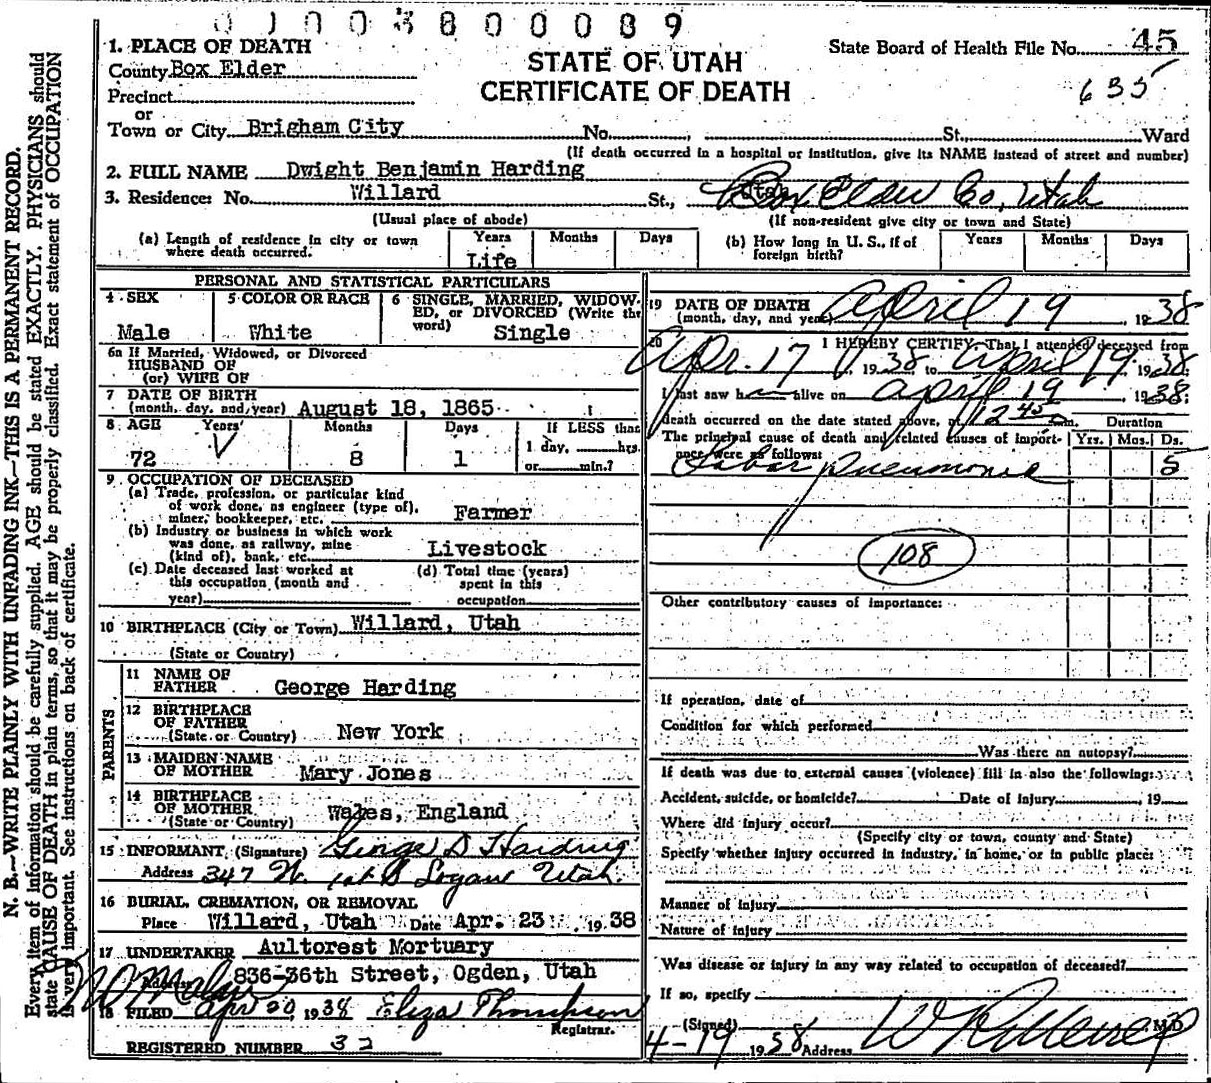 0 1 0 0 3 8 0 0 0 8 9
1. PLACE OF DEATH
County Box Elder
Precinct
or
Town or City Brigham City No. , St., Ward
(If death occurred in a hospital or institution, give its NAME instead of street and number)
STATE OF UTAH
CERTIFICATE OF DEATH
State Board of Health File No. 45
635
2. FULL NAME Dwight Benjamin Harding
3. Residence: No. Willard St., Box Elder Co, Utah
(Usual place of abode) (If non-resident give city or town and State)
(a) Length of residence in city or town where death occurred. Years Life Months Days
(b) How long in U. S., if of foreign birth? Years Months Days
PERSONAL AND STATISTICAL PARTICULARS
4 SEX Male
5 COLOR OR RACE White
6 SINGLE, MARRIED, WIDOWED, or DIVORCED (Write the word) Single
6a If Married, Widowed, or Divorced
HUSBAND OF
(or) WIFE OF
7 DATE OF BIRTH
(month, day, and year) August 18, 1865
8 AGE Years 72 Months 8 Days 1 If LESS than 1 day, hrs. or min.?
9 OCCUPATION OF DECEASED
(a) Trade, profession, or particular kind
of work done, as engineer (type of),
miner, bookkeeper, etc. Farmer
(b) Industry or business in which work
was done, as railway, mine
(kind of), bank, etc. Livestock
(c) Date deceased last worked at
this occupation (month and
year)
(d) Total time (years)
spent in this
occupation
10 BIRTHPLACE (City or Town) Willard, Utah
(State or Country)
PARENTS
11 NAME OF
FATHER George Harding
12 BIRTHPLACE
OF FATHER
(State or Country) New York
13 MAIDEN NAME
OF MOTHER Mary Jones
14 BIRTHPLACE
OF MOTHER
(State or Country) Wales, England
15 INFORMANT (Signature) George D Harding
Address 347 W. 1st S Logan Utah.
16 BURIAL, CREMATION, OR REMOVAL
Place Willard, Utah Date Apr. 23 , 1938
17 UNDERTAKER Aultorest Mortuary
Address 836-36th Street, Ogden, Utah
18 FILED Apr 20, 1938 Eliza Thompson
Registrar.
REGISTERED NUMBER 32
19 DATE OF DEATH
(month, day, and year) April 19 , 1938
20 I HEREBY CERTIFY, That I attended deceased from
Apr. 17, 1938 to April 19, 1938;
I last saw h alive on April 19 1938;
death occurred on the date stated above, at 12 40 m.
The principal cause of death and related causes of importance were as follows:
Duration
Yrs. Mos. Ds.
Lobar pneumonia 5
108
Other contributory causes of importance:
If operation, date of
Condition for which performed
Was there an autopsy?
If death was due to external causes (violence) fill in also the following:
Accident, suicide, or homicide? Date of injury , 19
Where did injury occur?
(Specify city or town, county and State)
Specify whether injury occurred in industry, in home, or in public place:
Manner of injury
Nature of injury
Was disease or injury in any way related to occupation of deceased?
If so, specify
(Signed) M.D.
4-19 1938 Address
N. B.—WRITE PLAINLY WITH UNFADING INK—THIS IS A PERMANENT RECORD.
Every item of information should be carefully supplied. AGE should be stated EXACTLY. PHYSICIANS should
state CAUSE OF DEATH in plain terms, so that it may be properly classified. Exact statement of OCCUPATION
is very important. See instructions on back of certificate.